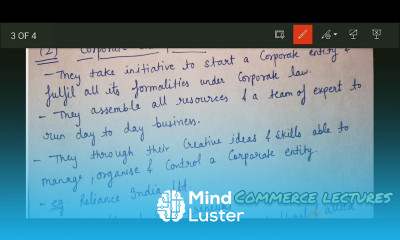 3 OF 4
(2) Corporate
- They take initiative to start a Corporate entity &
fulfil all its formalities under Corporate law.
- They assemble all resources & a team of expert to
run day to day business.
- They through their Creative ideas & skills able to
manage, organise & Control a Corporate entity.
- eg Reliance India Ltd.
Mind Luster
COMMERCE LECTURES